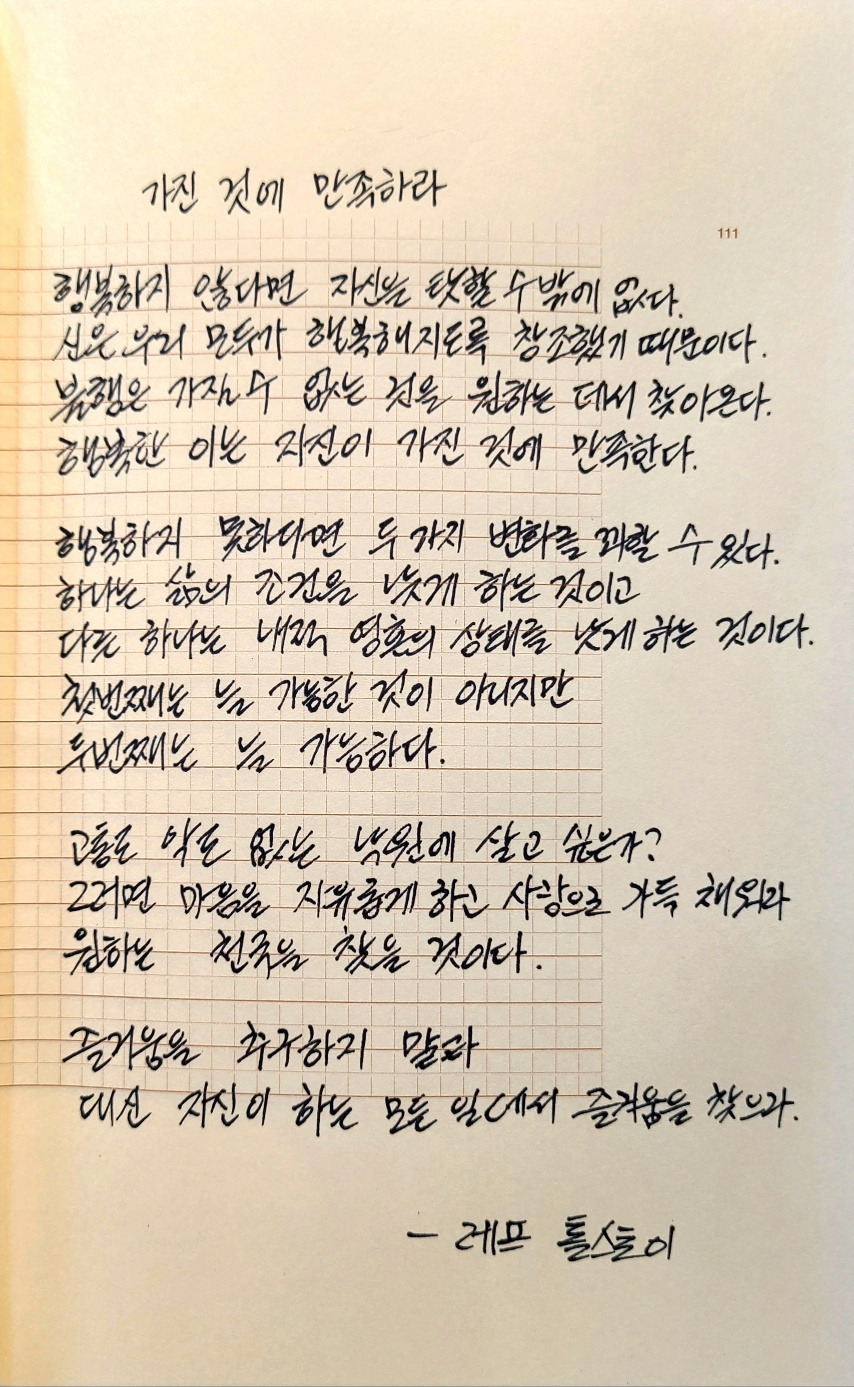 가진 것에 만족하라
111
행복하지 않다면 자신을 탓할 수밖에 없다.
신은 우리 모두가 행복해지도록 창조했기 때문이다.
불행은 가질 수 없는 것을 원하는 데서 찾아온다.
행복한 이는 자신이 가진 것에 만족한다.
행복하지 못하다면 두가지 변화를 꾀할 수 있다.
하나는 삶의 조건을 낫게 하는 것이고
다른 하나는 내적 영혼의 상태를 낫게 하는 것이다.
첫번째는 늘 가능한 것이 아니지만
두번째는 늘 가능하다.
고통도 악도 없는 낙원에 살고 싶은가?
그러면 마음을 자유롭게 하고 사랑으로 가득 채워라
원하는 천국을 찾을 것이다.
즐거움을 추구하지 말라
대신 자신이 하는 모든 일에서 즐거움을 찾으라.
- 레프 톨스토이